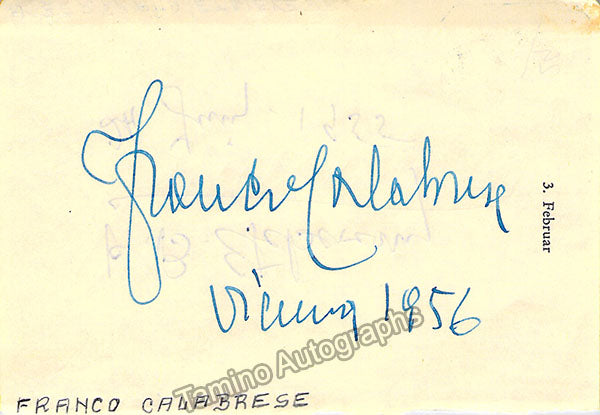 Franco Calabrese
Vienna 1956
3. Februar
Tamino Autographs
FRANCO CALABRESE